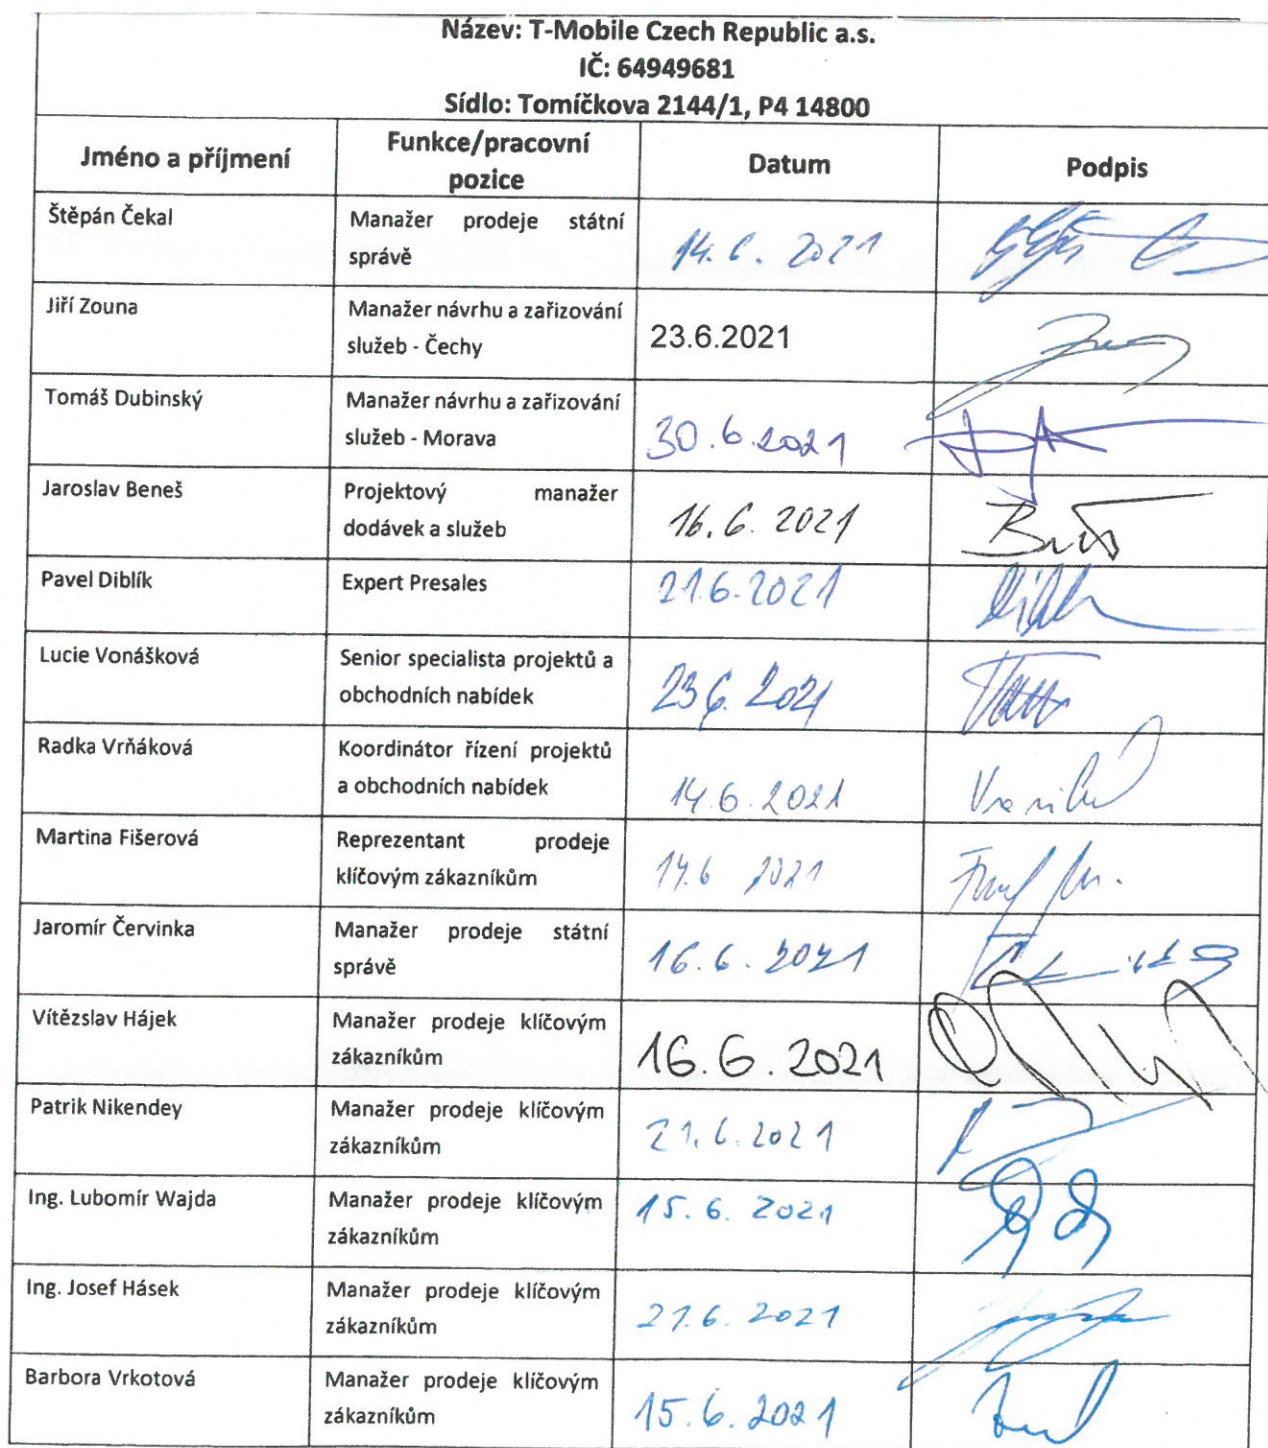 Název: T-Mobile Czech Republic a.s.
IČ: 64949681
Sídlo: Tomíčkova 2144/1, P4 14800
Jméno a příjmení Funkce/pracovní pozice Datum Podpis
Štěpán Čekal Manažer prodeje státní
správě 14.6.2021
Jiří Zouna Manažer návrhu a zařizování
služeb - Čechy 23.6.2021
Tomáš Dubinský Manažer návrhu a zařizování
služeb - Morava 30.6.2021
Jaroslav Beneš Projektový manažer
dodávek a služeb 16.6.2021
Pavel Diblík Expert Presales 21.6.2021
Lucie Vonášková Senior specialista projektů a
obchodních nabídek 23.6.2021
Radka Vrňáková Koordinátor řízení projektů
a obchodních nabídek 14.6.2021
Martina Fišerová Reprezentant prodeje
klíčovým zákazníkům 14.6 2021
Jaromír Červinka Manažer prodeje státní
správě 16.6.2021
Vítězslav Hájek Manažer prodeje klíčovým
zákazníkům 16.6.2021
Patrik Nikendey Manažer prodeje klíčovým
zákazníkům 21.6.2021
Ing. Lubomír Wajda Manažer prodeje klíčovým
zákazníkům 15.6.2021
Ing. Josef Hásek Manažer prodeje klíčovým
zákazníkům 21.6.2021
Barbora Vrkotová Manažer prodeje klíčovým
zákazníkům 15.6.2021